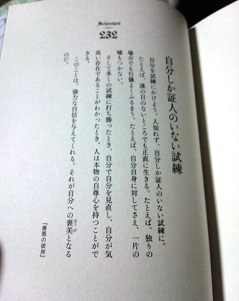 232
自分しか証人のいない試練
自分を試練にかけよう。人知れず、自分しか証人のいない試練に。
たとえば、誰の目のないところでも正直に生きる。たとえば、独りの
場合でも行儀よくふるまう。たとえば、自分自身に対してさえ、一片の
嘘もつかない。
そして多くの試練に打ち勝ったとき、自分で自分を見直し、自分が気
高い存在であることがわかったとき、人は本物の自尊心を持つことがで
きる。
このことは、強力な自信を与えてくれる。それが自分への褒美となる
のだ。
『善悪の彼岸』